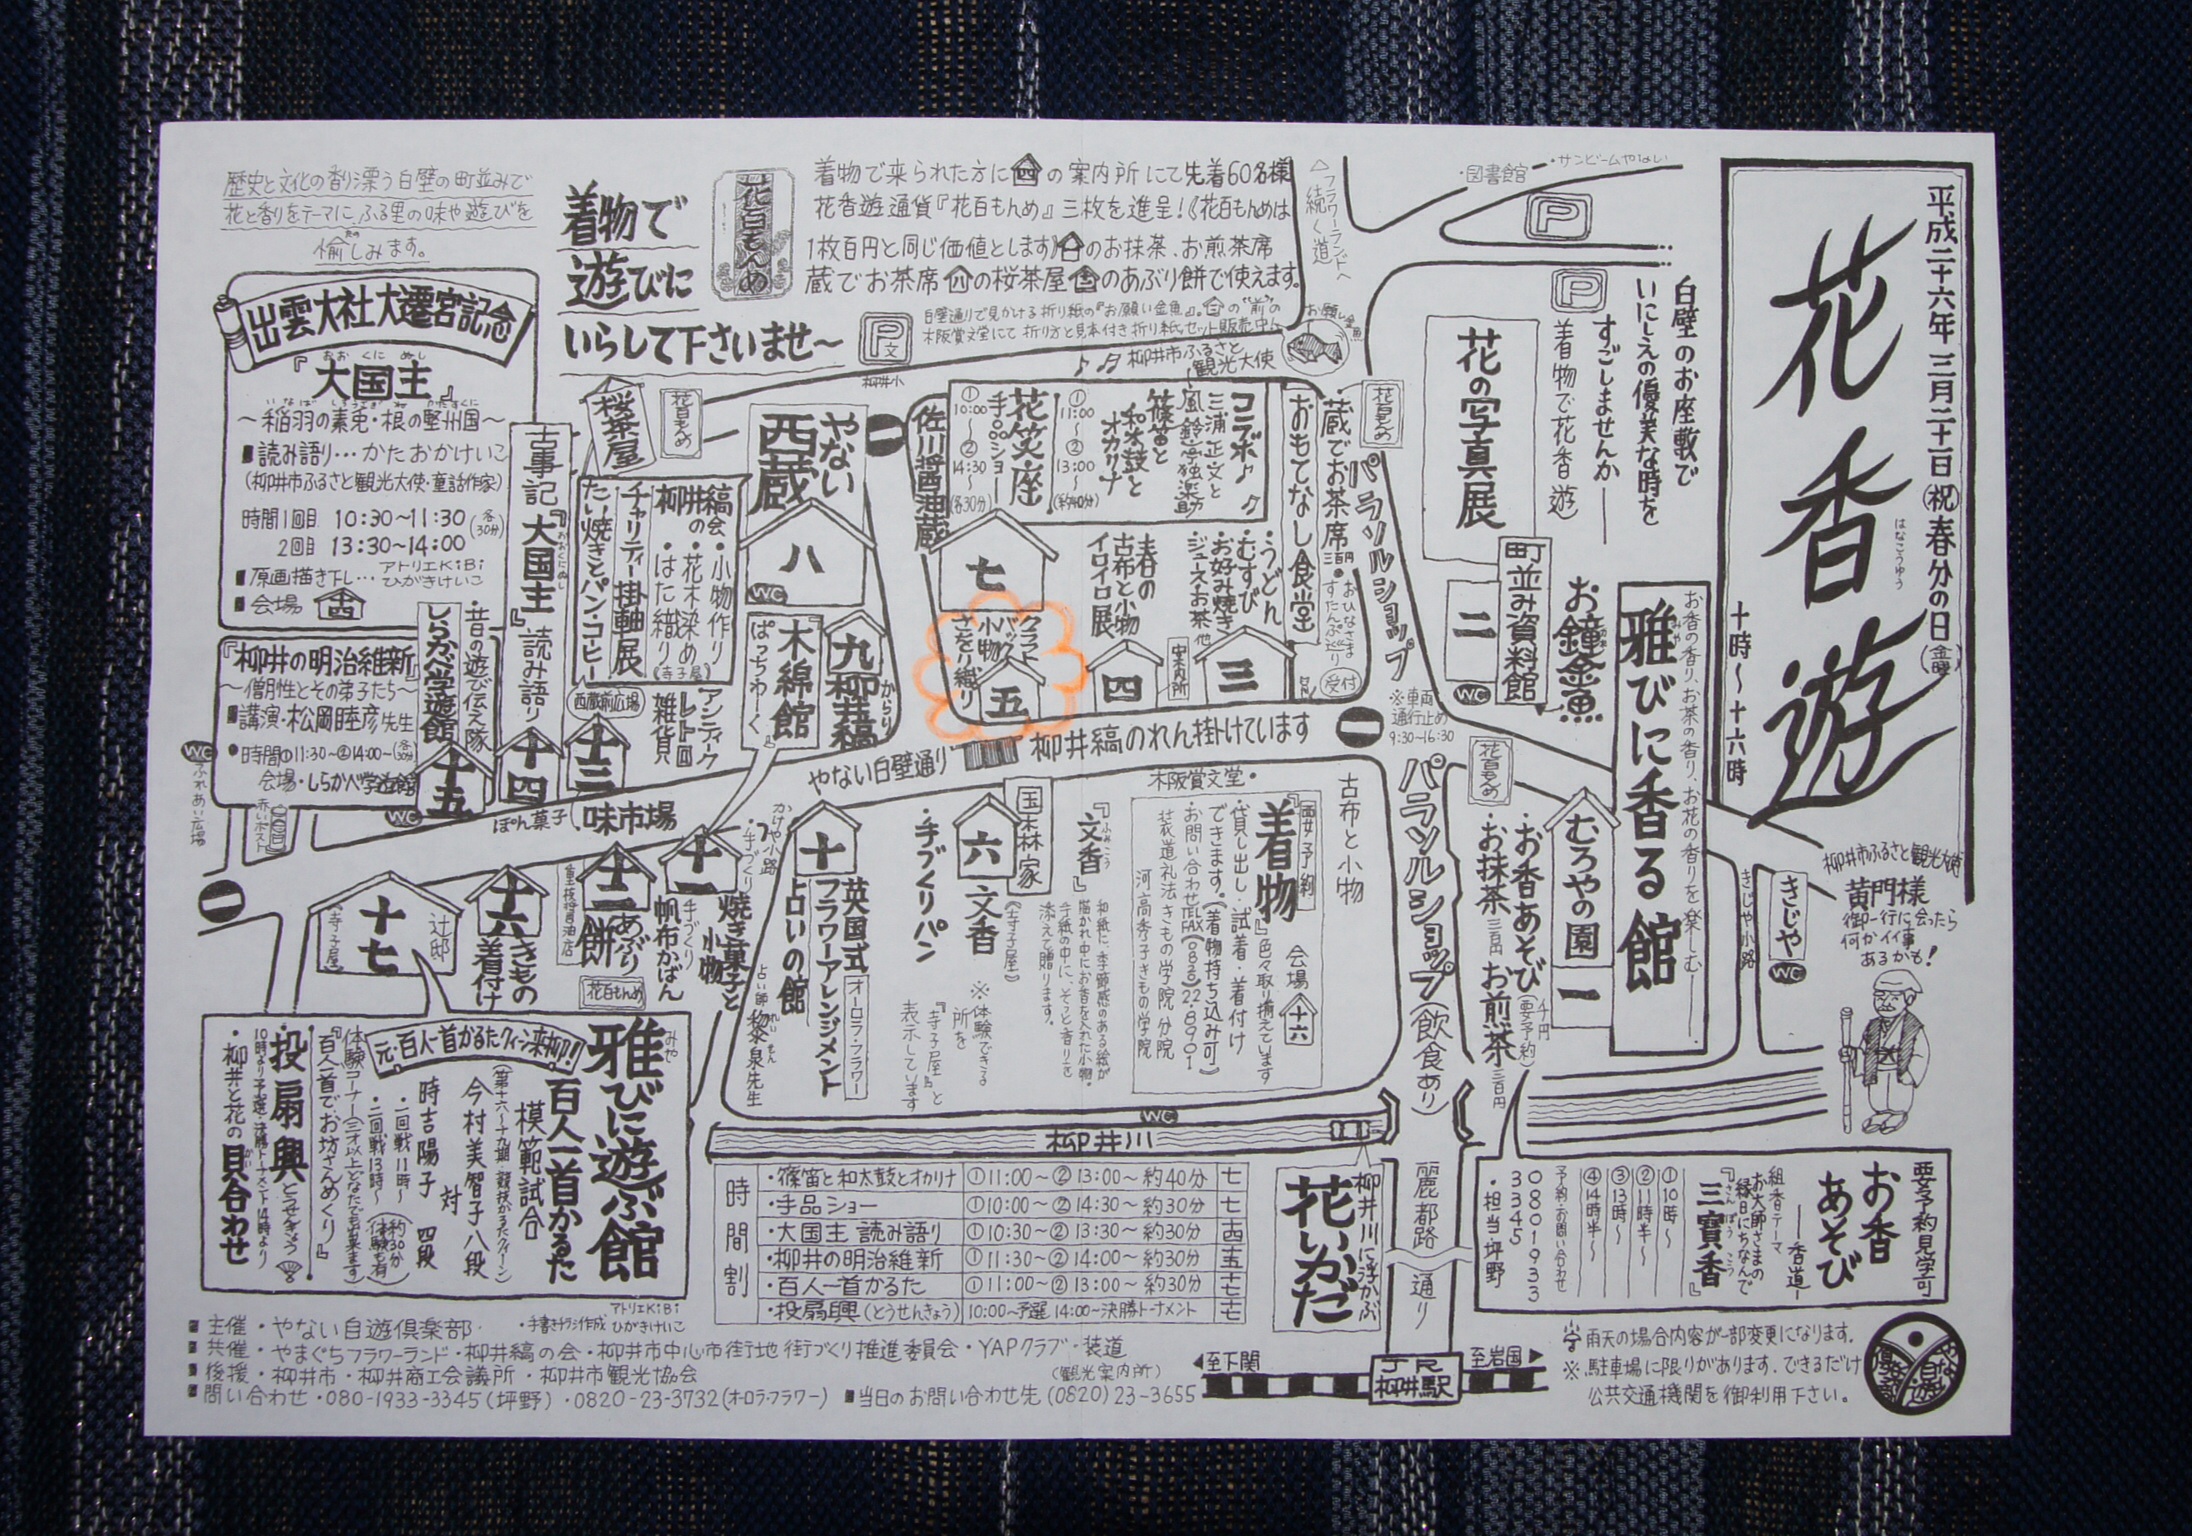 平成二十六年三月二十一日(祝)春分の日(金曜)
花香遊
はなこうゆう
十時〜十六時
歴史と文化の香り漂う白壁の町並みで
花と香りをテーマに、ふる里の味や遊びを
愉しみます。
着物で
遊びに
いらして下さいませ〜
花百もんめ
着物で来られた方に四の案内所にて先着60名様
花香遊通貨『花百もんめ』三枚を進呈!《花百もんめは
1枚百円と同じ価値とします》一のお抹茶、お煎茶席
蔵でお茶席
の桜茶屋
のあぶり餅で使えます。
白壁通りで見かける折り紙の『お願い金魚』。
木阪賞文堂にて折り方と見本付き折り紙セット販売中
お願い金魚
△フラワーランドへ
続く道
・図書館
・サンビームやない
P
P
P文
柳井小
出雲大社大遷宮記念
おおくにぬし
『大国主』
〜稲羽の素兎・根の堅州国〜
■読み語り…かたおかけいこ
(柳井市ふるさと観光大使・童話作家)
時間1回目 10:30〜11:30(各30分)
2回目 13:30〜14:00
■原画描き下し…アトリエKiBi ひがきけいこ
■会場 十四
『柳井の明治維新』
〜僧月性とその弟子たち〜
■講演・松岡睦彦先生
●時間①11:30〜②14:00〜(各30分)
会場・しらかべ学遊館
WC
ふれあい広場
赤いポスト
しらかべ学遊館
・昔の遊び伝え隊
十五
古事記『大国主』読み語り
十四
桜茶屋
花百もんめ
柳井縞の会
・小物作り
・花木染め
・はに織り
(寺子屋)
チャリティー掛軸展
たい焼きとパン・コーヒー
西蔵前広場
十三
アンティーク
レトロ
雑貨
やない西蔵
八
WC
木綿館
ぱっちわーく
九
柳井縞
からり
佐川醤油蔵
花笑座
手品ショー
①10:00〜②14:30〜(各30分)
コラボ♪
三浦正文と
風鈴亭独楽助
篠笛と
和太鼓と
オカリナ
①11:00〜②13:00〜(約40分)
柳井市ふるさと
観光大使
七
クラフト
バック
小物
さをり織り
五
春の
古布と小物
イロイロ展
四
案内所
おもてなし食堂
・うどん
・むすび
・お好み焼き
・ジュース・お茶 他
三
蔵でお茶席 三百円
・おひなさま
すたんぷらり
受付
花百もんめ
パラソルショップ
※車両
通行止め
9:30〜16:30
柳井縞のれん掛けています
やない白壁通り
花の写真展
町並み資料館
二
WC
お鐘金魚
白壁のお座敷で
いにしえの優美な時を
すごしませんか―
着物で花香遊
雅びに香る館
お香の香り、お茶の香り、お花の香りを楽しむ―
むろやの園
一
・お香あそび(要予約)千円
・お抹茶 三百円
お煎茶 三百円
花百もんめ
きじや小路
きじや
WC
柳井市ふるさと観光大使
黄門様
御一行に会ったら
何かイイ事
あるかも!
パラソルショップ(飲食あり)
古布と小物
木阪賞文堂・
要予約
『着物』色々取り揃えています
会場 十六
・貸し出し・試着・着付け
できます。(着物持ち込み可)
・お問い合わせTEL FAX(0820)22-8901
装道礼法きもの学院 分院
河高秀子きもの学院
『文香』
和紙に、季節感のある絵が
描かれ中にお香を入れた小物。
手紙の中に、そっと香りを
添えて贈ります。
国森家
六
文香
(寺子屋)
・手づくりパン
※体験できる
所を
『寺子屋』と
表示しています
十
英国式
フラワーアレンジメント
オーロラ・フラワー
占いの館
占い師 黎泉先生
かけや小路
・手づくり
ぽん菓子 味市場
十一
焼き菓子と
小物
手づくり
帆布かばん
十二
あぶり餅
重枝醤油店
花百もんめ
十六
きもの
着付け
十七
辻邸
(寺子屋)
雅びに遊ぶ館
みや
百人一首かるた
模範試合
元・百人一首かるたクィーン来柳!
(第十六〜十九期・競技かるたクィーン)
今村美智子八段
対
時吉陽子 四段
・一回戦11時〜
・二回戦13時〜
(約30分 体験も有)
体験コーナー(三才以上どなたでも出来ます)
『百人一首でお坊さんめくり』
・投扇興 とうせんきょう
10時より予選・決勝トーナメント14時より
・柳井と花の貝合わせ
柳井川
WC
時間割
・篠笛と和太鼓とオカリナ ①11:00〜②13:00〜 約40分 七
・手品ショー ①10:00〜②14:30〜 約30分 七
・大国主 読み語り ①10:30〜②13:30〜 約30分 十四
・柳井の明治維新 ①11:30〜②14:00〜 約30分 十五
・百人一首かるた ①11:00〜②13:00〜 約30分 十七
・投扇興(とうせんきょう) 10:00〜予選 14:00〜決勝トーナメント 十七
柳井川に浮かぶ
花いかだ
麗都路通り
要予約見学可
お香
あそび
―香道―
組香テーマ
お大師さまの
縁日にちなんで
『三寶香』
さんぽうこう
①10時〜
②11時半〜
③13時〜
④14時半〜
予約・お問い合わせ
08019333345
・担当・坪野
■主催・やない自遊倶楽部
・手書きチラシ作成 アトリエKiBi ひがきけいこ
■共催・やまぐちフラワーランド・柳井縞の会・柳井市中心市街地街づくり推進委員会・YAPクラブ・装道
■後援・柳井市・柳井商工会議所・柳井市観光協会
■問い合わせ・080-1933-3345(坪野)・0820-23-3732(オーロラ・フラワー)
■当日のお問い合わせ先(0820)23-3655
(観光案内所)
至下関
JR
柳井駅
至岩国
雨天の場合内容が一部変更になります。
※駐車場に限りがあります、できるだけ
公共交通機関を御利用下さい。
やない自遊倶楽部